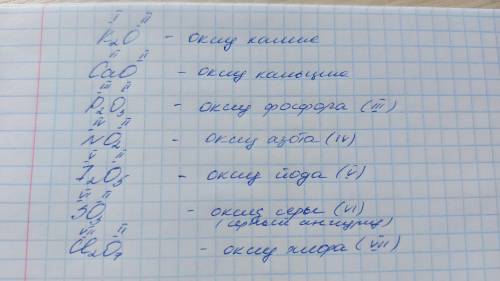 I II
K₂O - оксид калия
II II
CaO - оксид кальция
III II
P₂O₃ - оксид фосфора (III)
IV II
NO₂ - оксид азота (IV)
V II
I₂O₅ - оксид йода (V)
VI II
SO₃ - оксид серы (VI)
(серный ангидрид)
VII II
Cl₂O₇ - оксид хлора (VII)